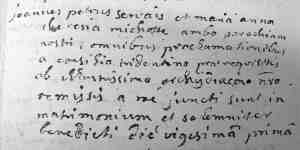 joannes petrus servais et maria anna
theresia michotte ambo parochiani
nostri, omnibus proclamationibus
a consilio tridentino prærequisitis
ab illustrissimo archidiacono nro
remissis a me juncti sunt in
matrimonium et solemniter
benedicti die vigesima prima